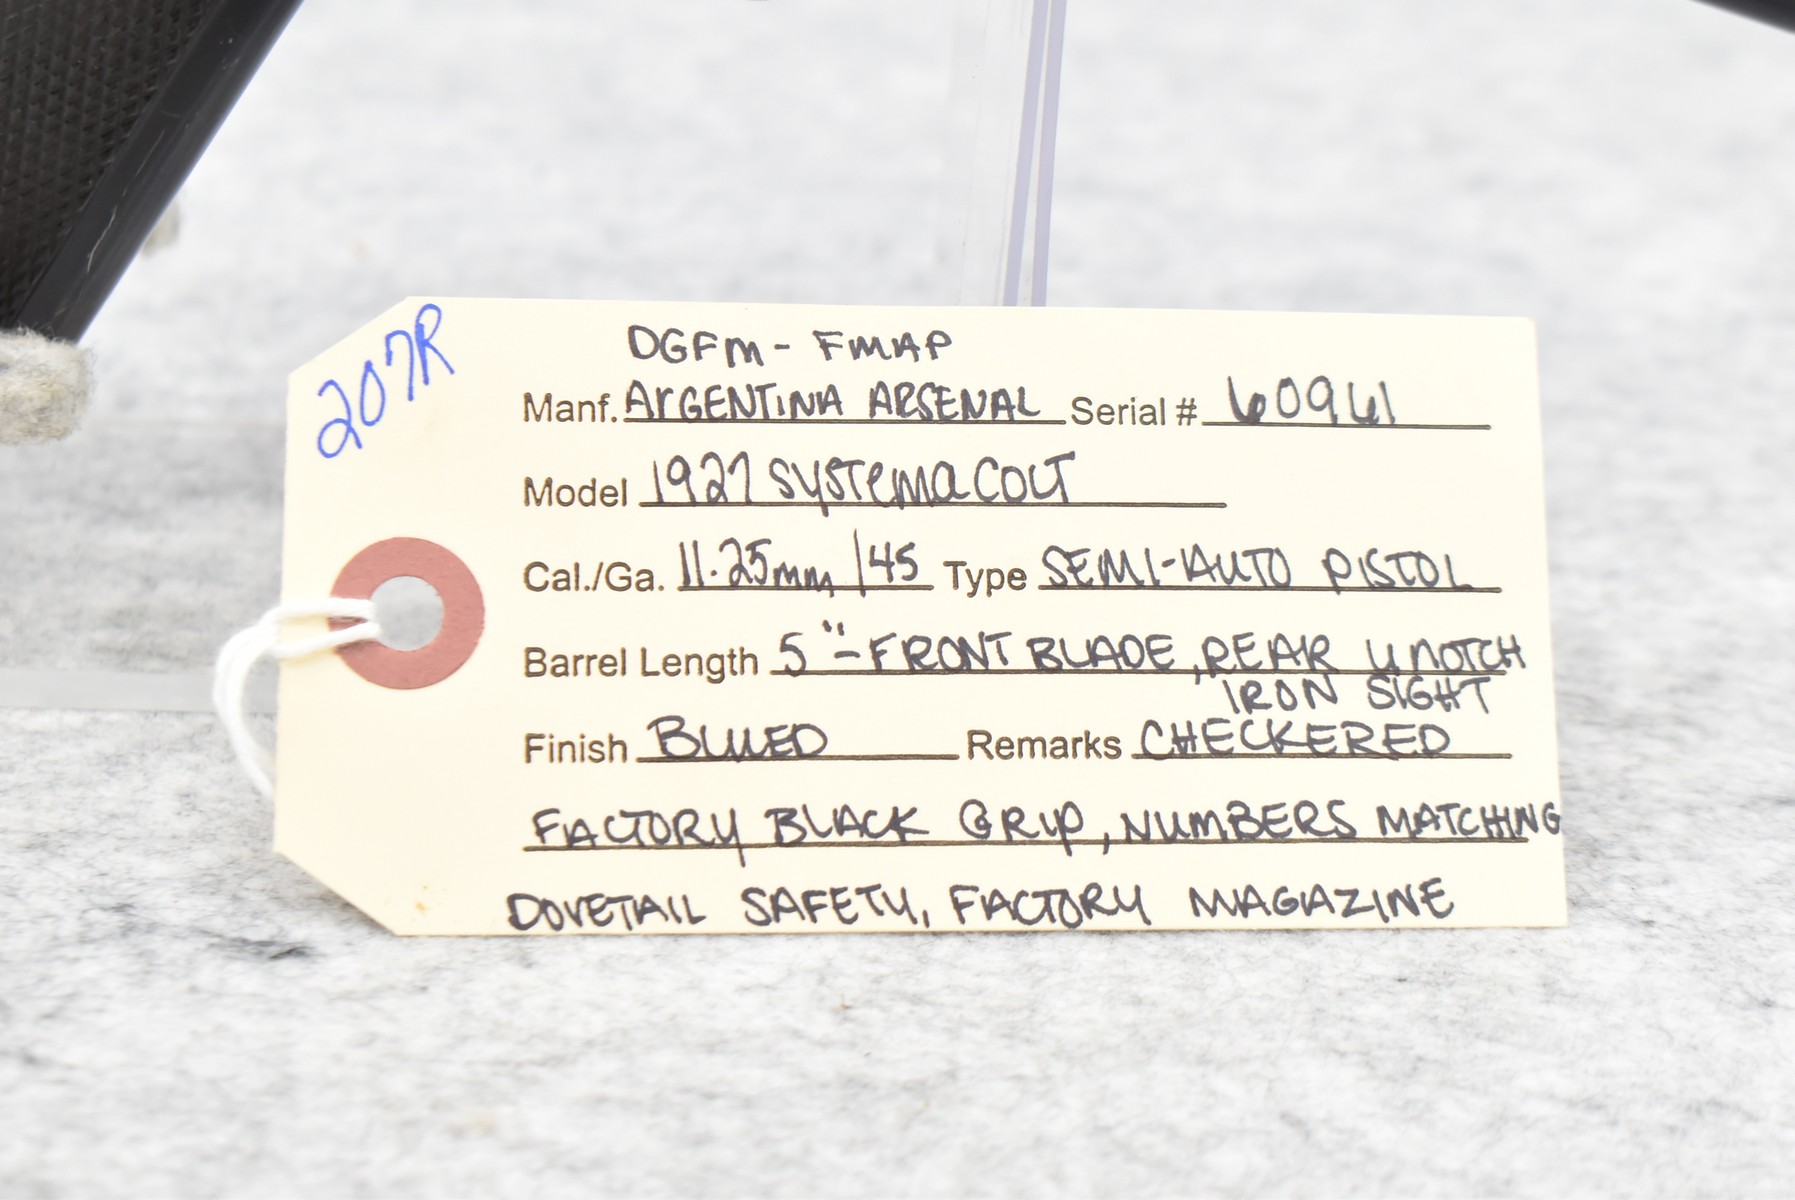 207R
DGFM - FMAP
Manf. ARGENTINA ARSENAL Serial # 60961
Model 1927 SYSTEMA COLT
Cal./Ga. 11.25mm/45 Type SEMI-AUTO PISTOL
Barrel Length 5" - FRONT BLADE, REAR U NOTCH
IRON SIGHT
Finish BLUED Remarks CHECKERED
FACTORY BLACK GRIP, NUMBERS MATCHING
DOVETAIL SAFETY, FACTORY MAGAZINE